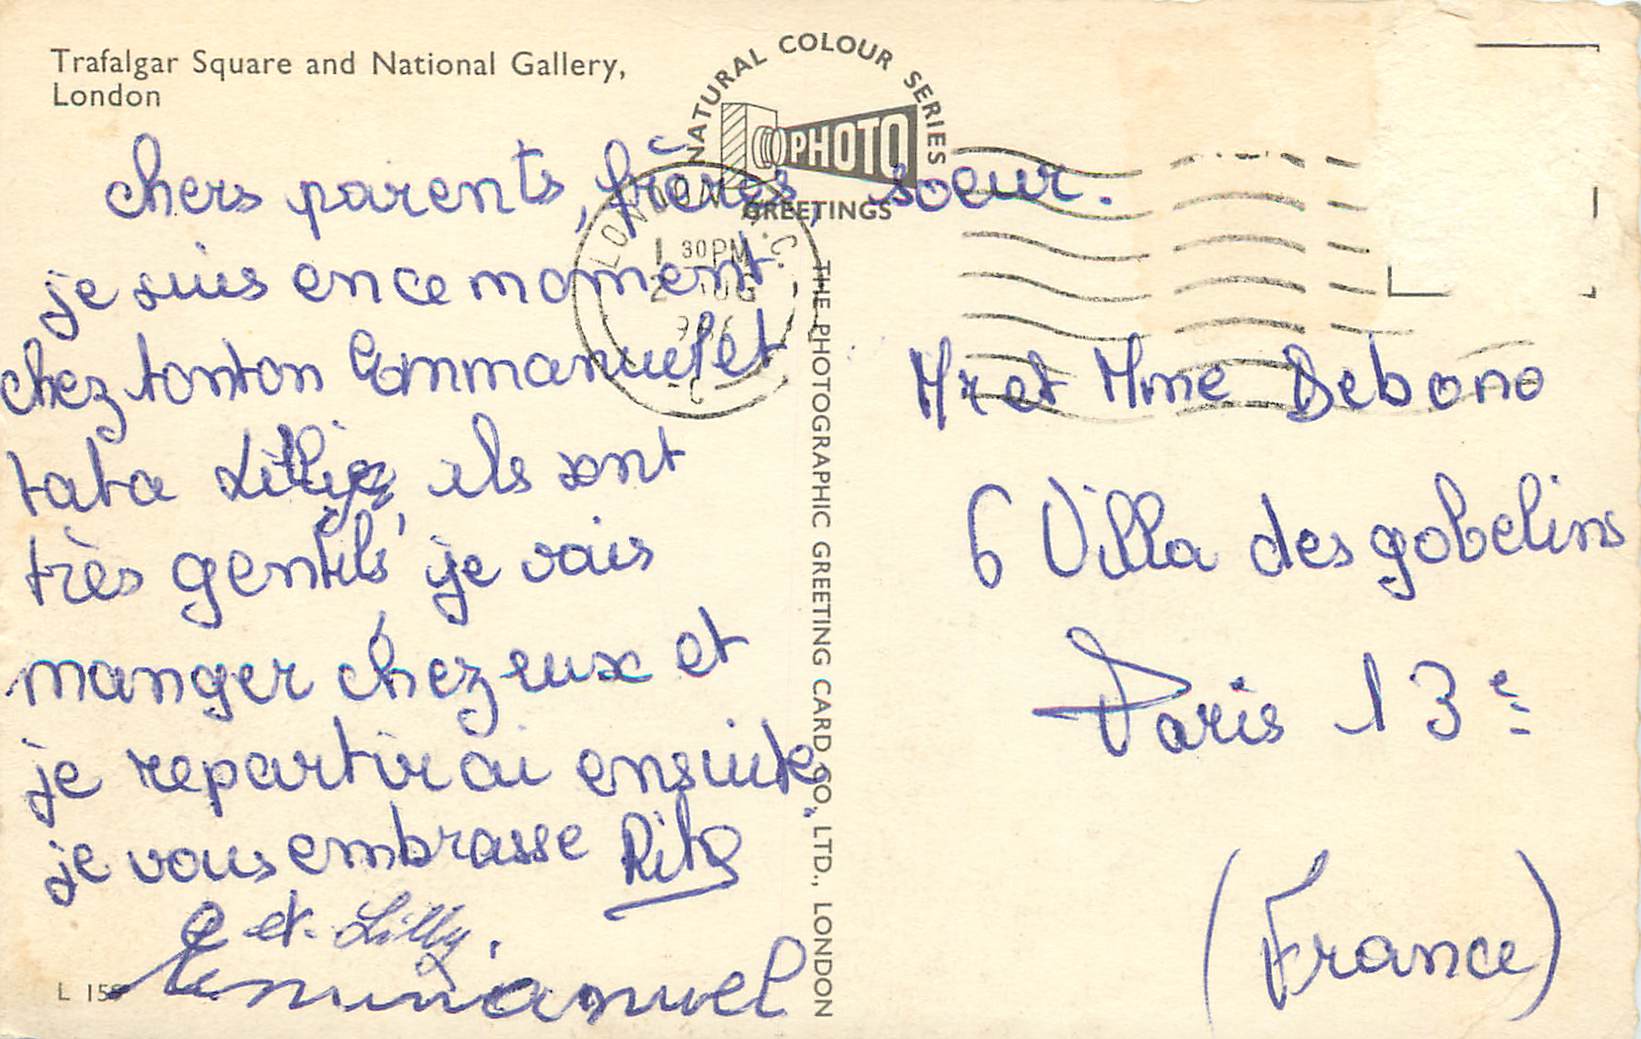 Trafalgar Square and National Gallery,
London
NATURAL COLOUR SERIES
PHOTO
GREETINGS
LONDON
1 30PM
chers parents, frères, soeur.
je suis en ce moment,
chez tonton Emmanuel et
tata Lillig, ils sont
très gentils, je vais
manger chez eux et
je repartirai ensuite.
je vous embrasse Rita
et Lilly.
Emmanuel
L 15
THE PHOTOGRAPHIC GREETING CARD CO, LTD., LONDON
Mr et Mme Debono
6 Villa des gobelins
Paris 13e
(France)